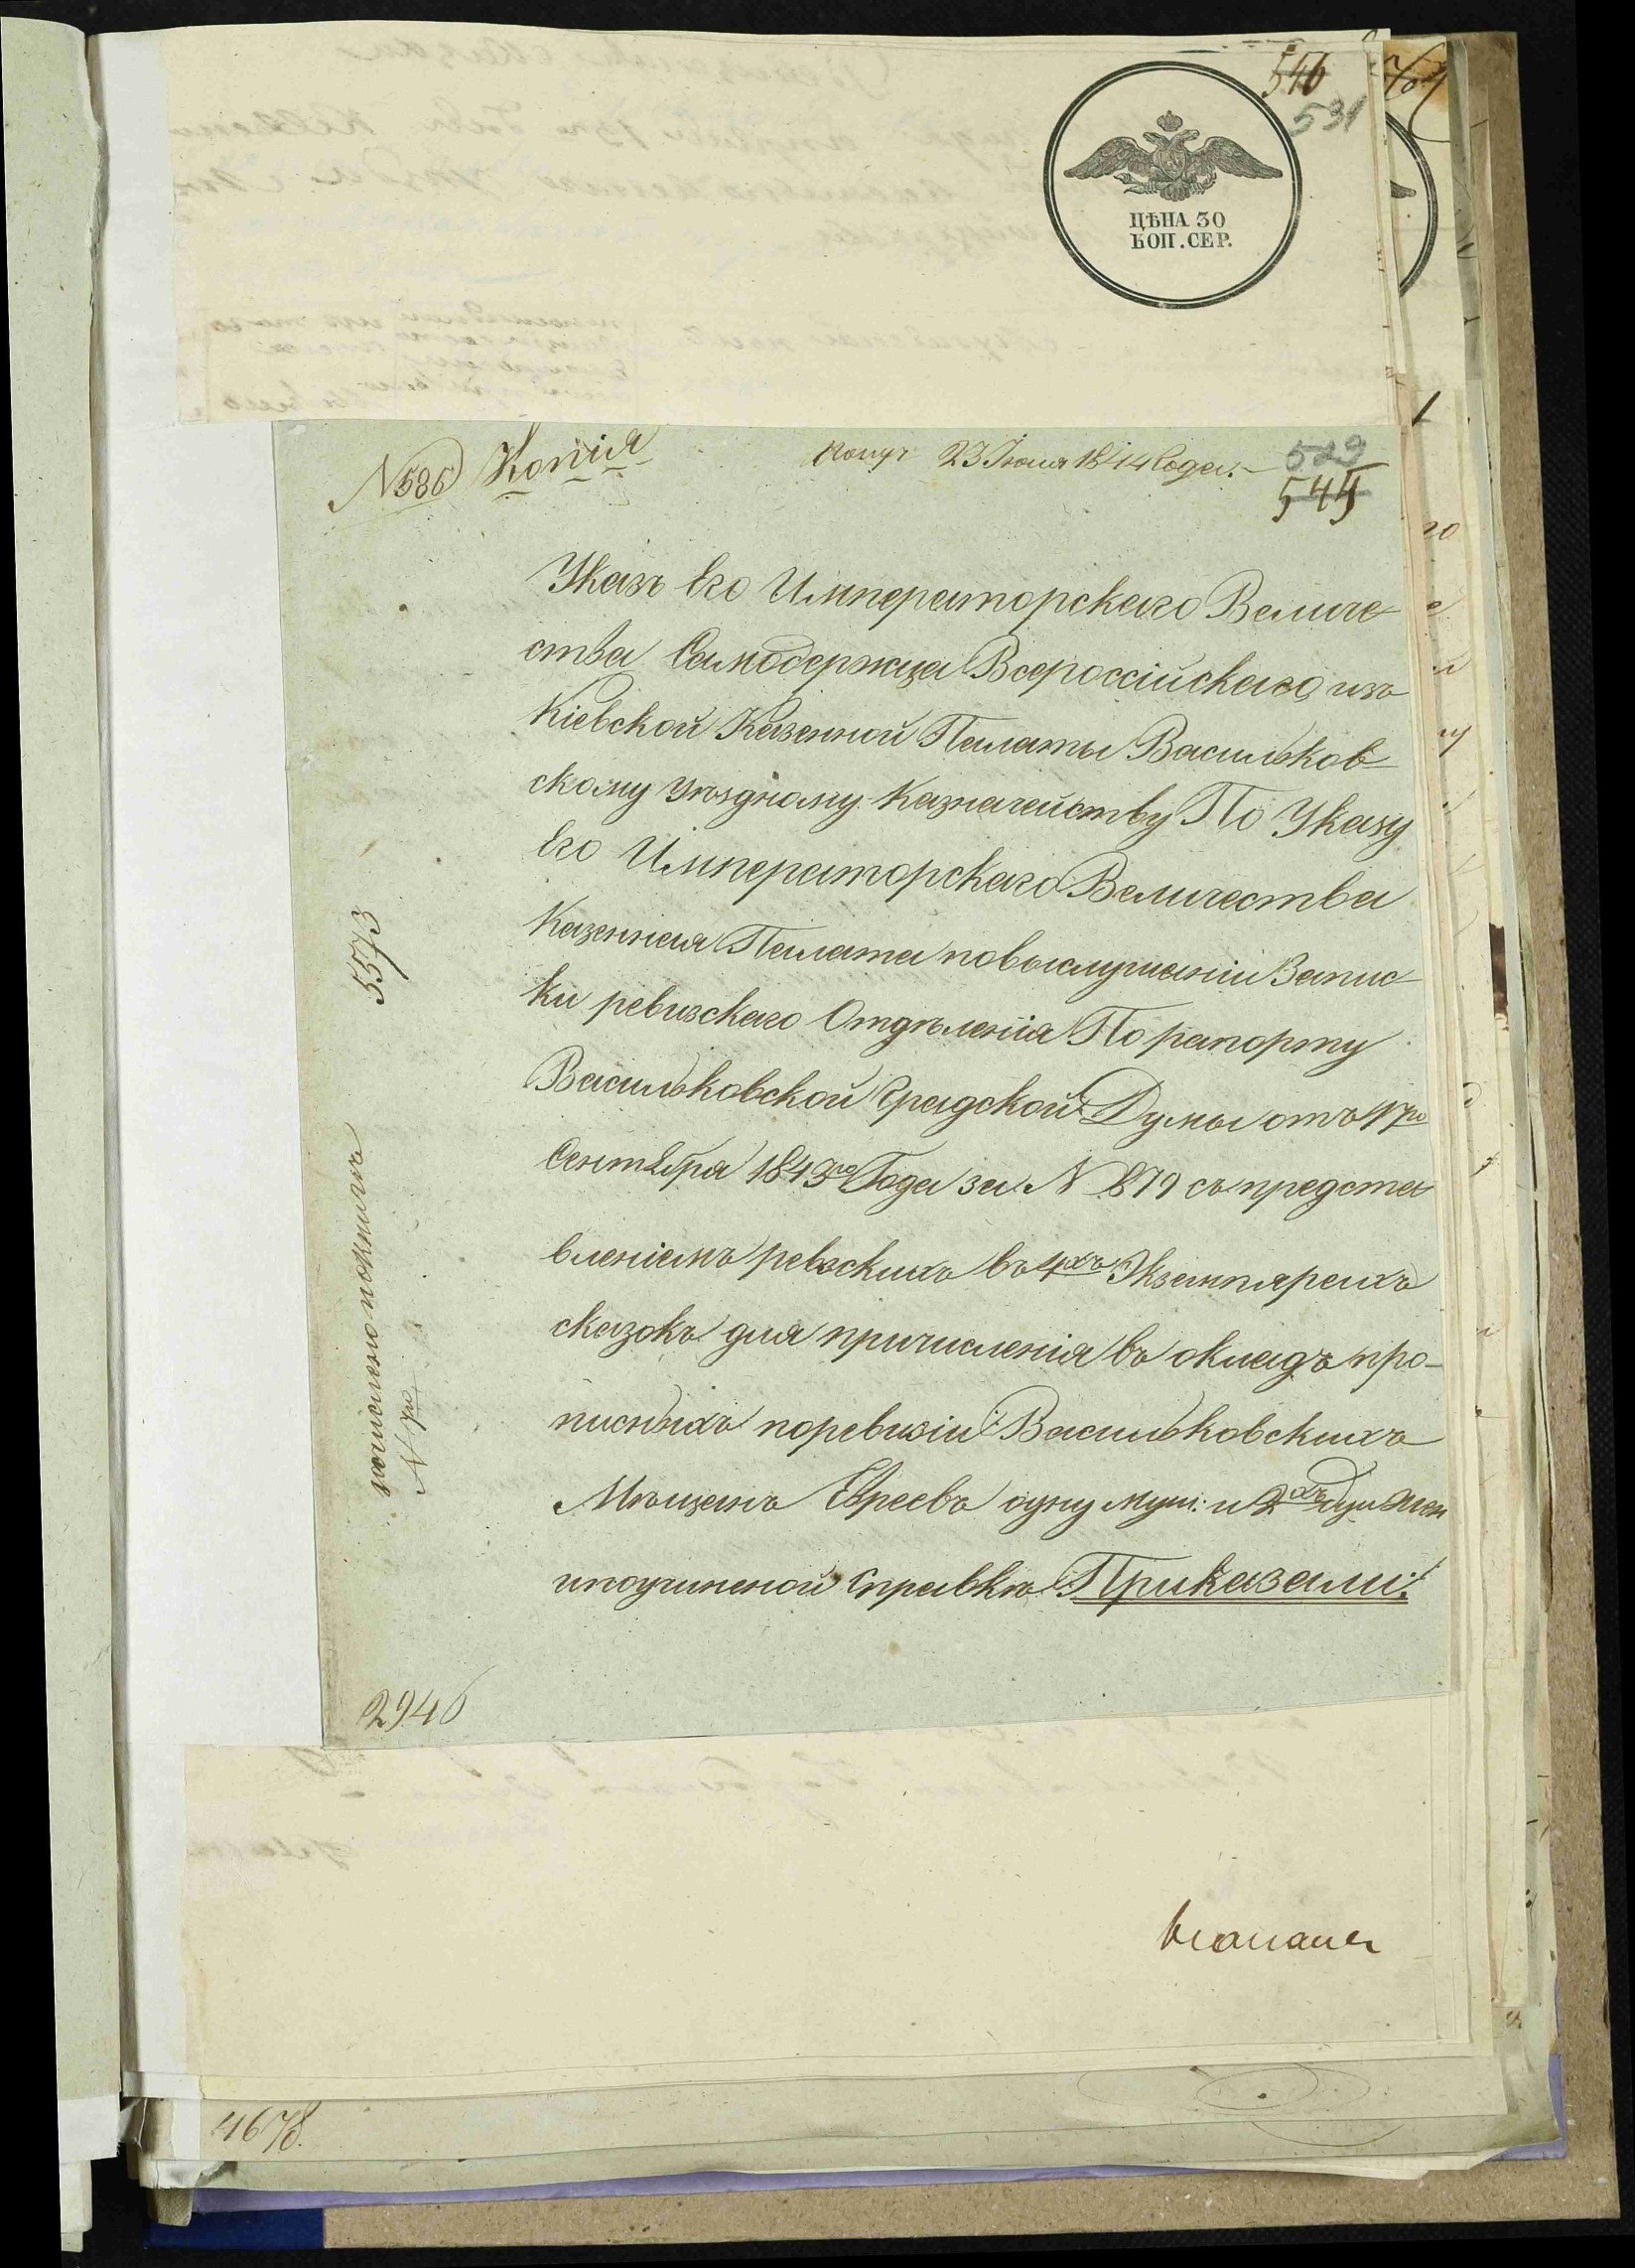 546
531
ЦѢНА 30
КОП. СЕР.
N 586 Копія
получ 23 Іюня 1844 Года.
529
545
Указъ Его Императорскаго Величе
ства Самодержца Всероссійскаго, изъ
Кіевской Казенной Палаты Васильков-
скому Уѣздному Казначейству По Указу
Его Императорскаго Величества
Казенная Палата повыслушаніи Запис-
ки ревизскаго Отдѣленія По рапорту
Васильковской Градской Думы отъ 17го
Сентября 1843го Года за N 879 съ предста
вленіемъ ревзскихъ въ 4хъ Экземпярахъ
сказокъ для причисленія въ окладъ про-
писныхъ поревизіи Васильковскихъ
Мѣщанъ Евреевъ одну муш: и 2хъ душ жен
ипоучиненой справкѣ Приказали:
5573
N 7го
2946
4678.